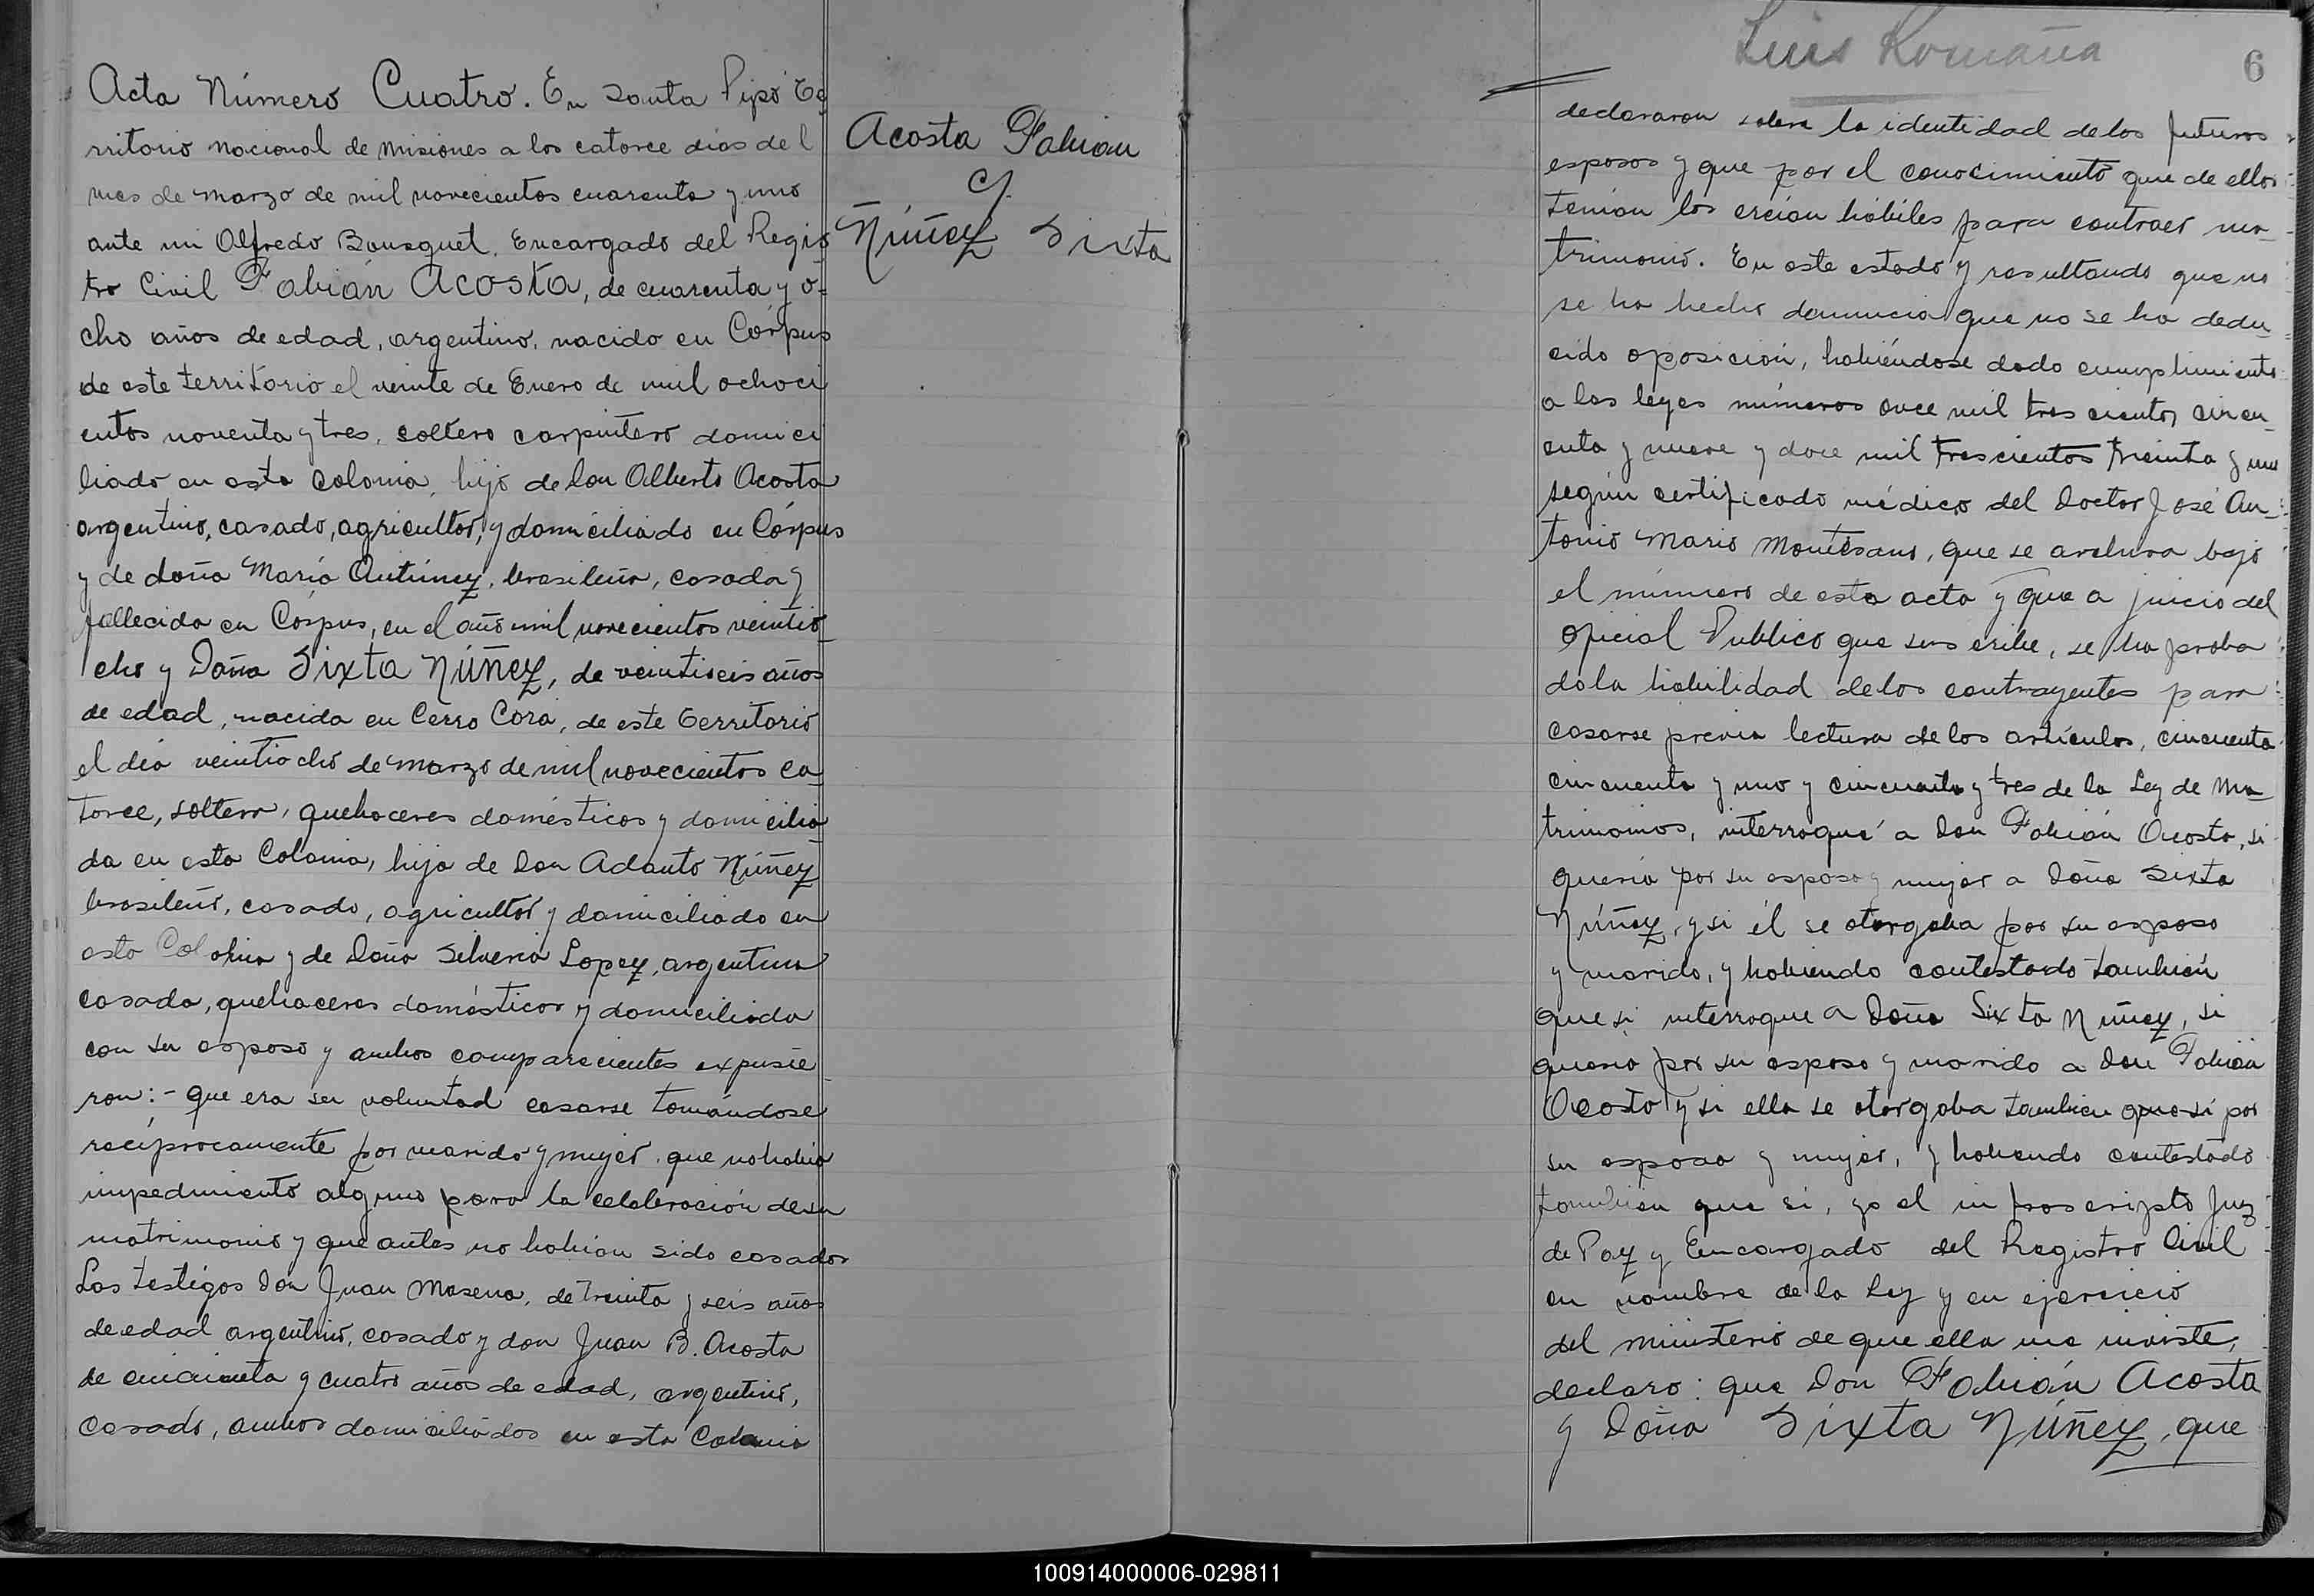 Acta Número Cuatro. En Santa Pipó Te
rritorio nacional de Misiones a los catorce días del
mes de Marzo de mil novecientos cuarenta y uno
ante mi Alfredo Bousquet, Encargado del Regis
tro Civil Fabián Acosta, de cuarenta y o-
cho años de edad, argentino, nacido en Córpus
de este territorio el veinte de Enero de mil ochoci
entos noventa y tres, soltero carpintero domici
liado en esta Colonia, hijo de Don Alberto Acosta
argentino, casado, agricultor, y domiciliado en Córpus
y de doña María Antúnez, brasileña, casada y
fallecida en Córpus, en el año mil novecientos veintio
cho y Doña Sixta Núñez, de veintiseis años
de edad, nacida en Cerro Corá, de este Territorio
el día veintiocho de Marzo de mil novecientos ca
torce, soltera, quehaceres domésticos y domicilia
da en esta Colonia, hija de Don Adauto Núñez
brasileño, casado, agricultor y domiciliado en
esta Colonia y de Doña Silveria Lopez, argentina
casada, quehaceres domésticos y domiciliada
con su esposo y ambos comparecientes expusie
ron:- que era su voluntad casarse tomándose
recíprocamente por marido y mujer que no había
impedimento alguno para la celebración de su
matrimonio y que antes no habían sido casados
Los testigos Don Juan Masena, de treinta y seis años
de edad argentino, casado y don Juan B. Acosta
de cincuenta y cuatro años de edad, argentino,
casado, ambos domiciliados en esta Colonia
Acosta Fabian
c/.
Núñez Sixta
Luis Romaña
6
declararon sobre la identidad de los futuros
esposos y que por el conocimiento que de ellos
tenían los creían hábiles para contraer ma-
trimonio. En este estado y resultando que no
se ha hecho denuncia que no se ha dedu-
cido oposición, habiéndose dado cumplimiento
a las leyes números once mil tres cientos cincu-
enta y nueve y doce mil trescientos treinta y uno
según certificado médico del Doctor José An-
tonio Mario Montesano, que se archiva bajo
el número de esta acta y que a juicio del
oficial Publico que suscribe, se ha proba
do la habilidad de los contrayentes para
casarse previa lectura de los artículos, cincuenta
cincuenta y uno y cincuenta y tres de la Ley de Ma-
trimonios, interroqué a Don Fabián Acosta, si
quería por su esposa y mujer a Doña Sixta
Núñez, y si él se otorgaba por su esposo
y marido, y habiendo contestado también
que si interroque a Doña Sixta Núñez, si
quería por su esposo y marido a Don Fabián
Acosta y si ella se otorgaba tambien que si por
su esposa y mujer, y habiendo contestado
también que si, yo el infrascripto Juez
de Paz y Encargado del Registro Civil
en nombre de la Ley y en ejercicio
del ministerio de que ella me inviste,
declaro: que Don Fabián Acosta
y Doña Sixta Núñez, que
100914000006-029811